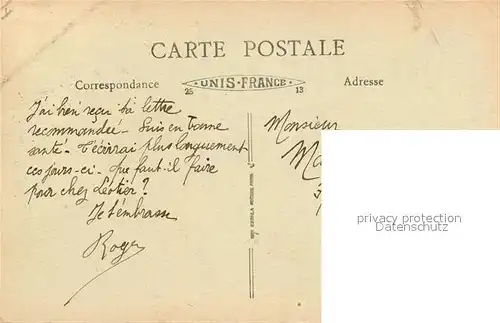 CARTE POSTALE
Correspondance
UNIS-FRANCE
25 13
Adresse
J'ai bien reçu ta lettre
recommandée - Suis en bonne
santé - T'écrirai plus longuement
ces jours-ci - que faut-il faire
pour chez Léotier ?
Je t'embrasse
Roger
Monsieur
privacy protection
Datenschutz